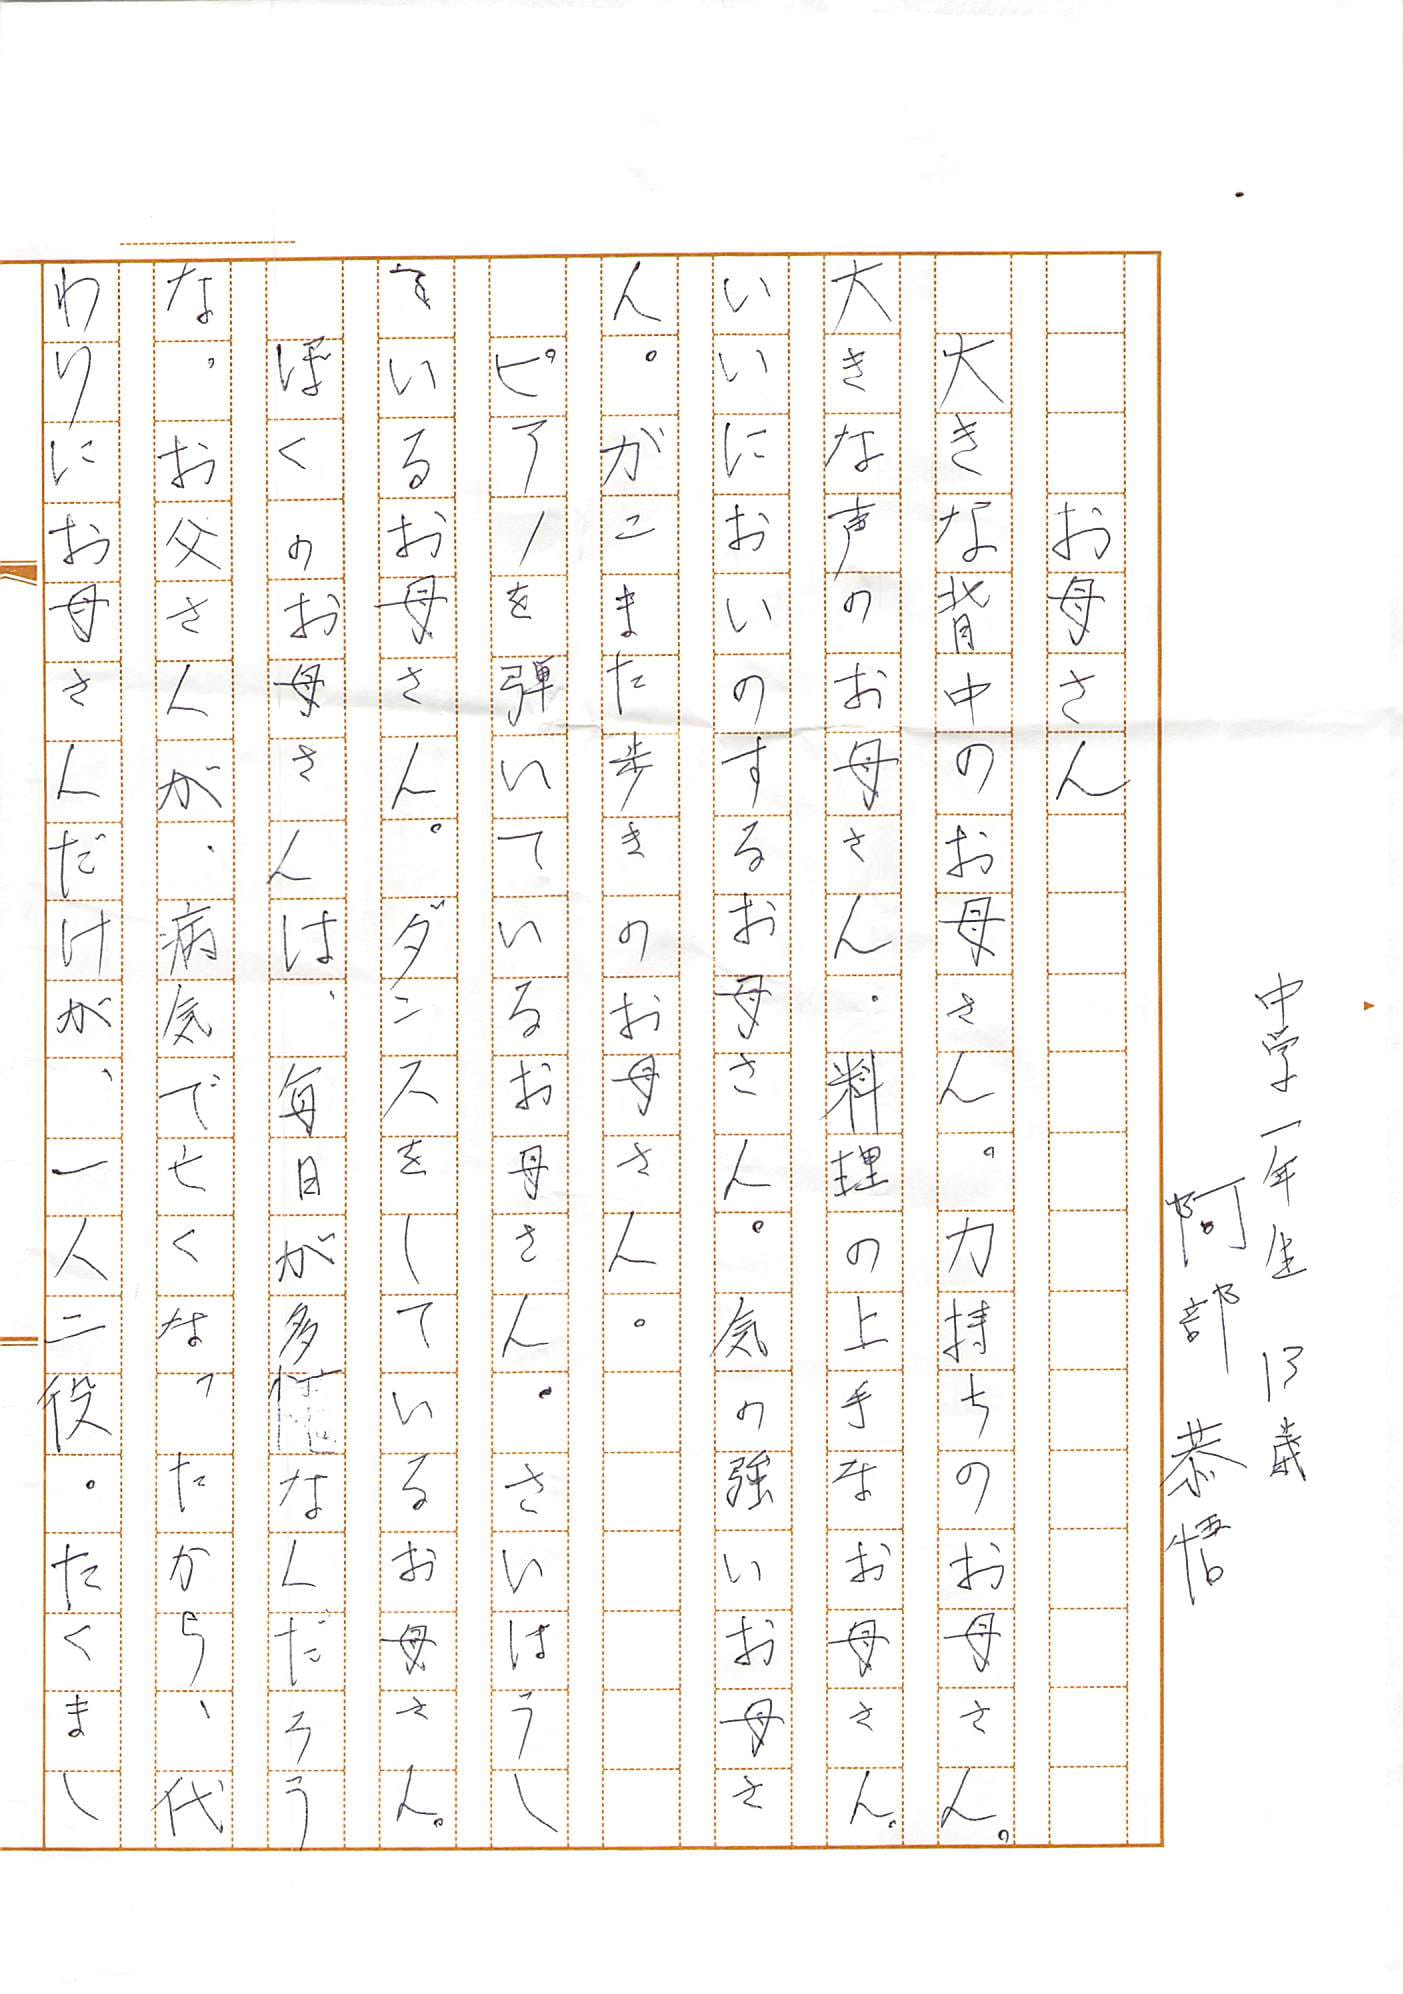 中学一年生 13歳
阿部 恭悟
お母さん
大きな背中のお母さん。力持ちのお母さん。
大きな声のお母さん。料理の上手なお母さん。
いいにおいのするお母さん。気の強いお母さ
ん。がこまた歩きのお母さん。
ピアノを弾いているお母さん。さいほうし
ているお母さん。ダンスをしているお母さん。
ぼくのお母さんは、毎日が多忙なんだろう
な。お父さんが、病気で亡くなったから、代
わりにお母さんだけが、一人二役。たくまし